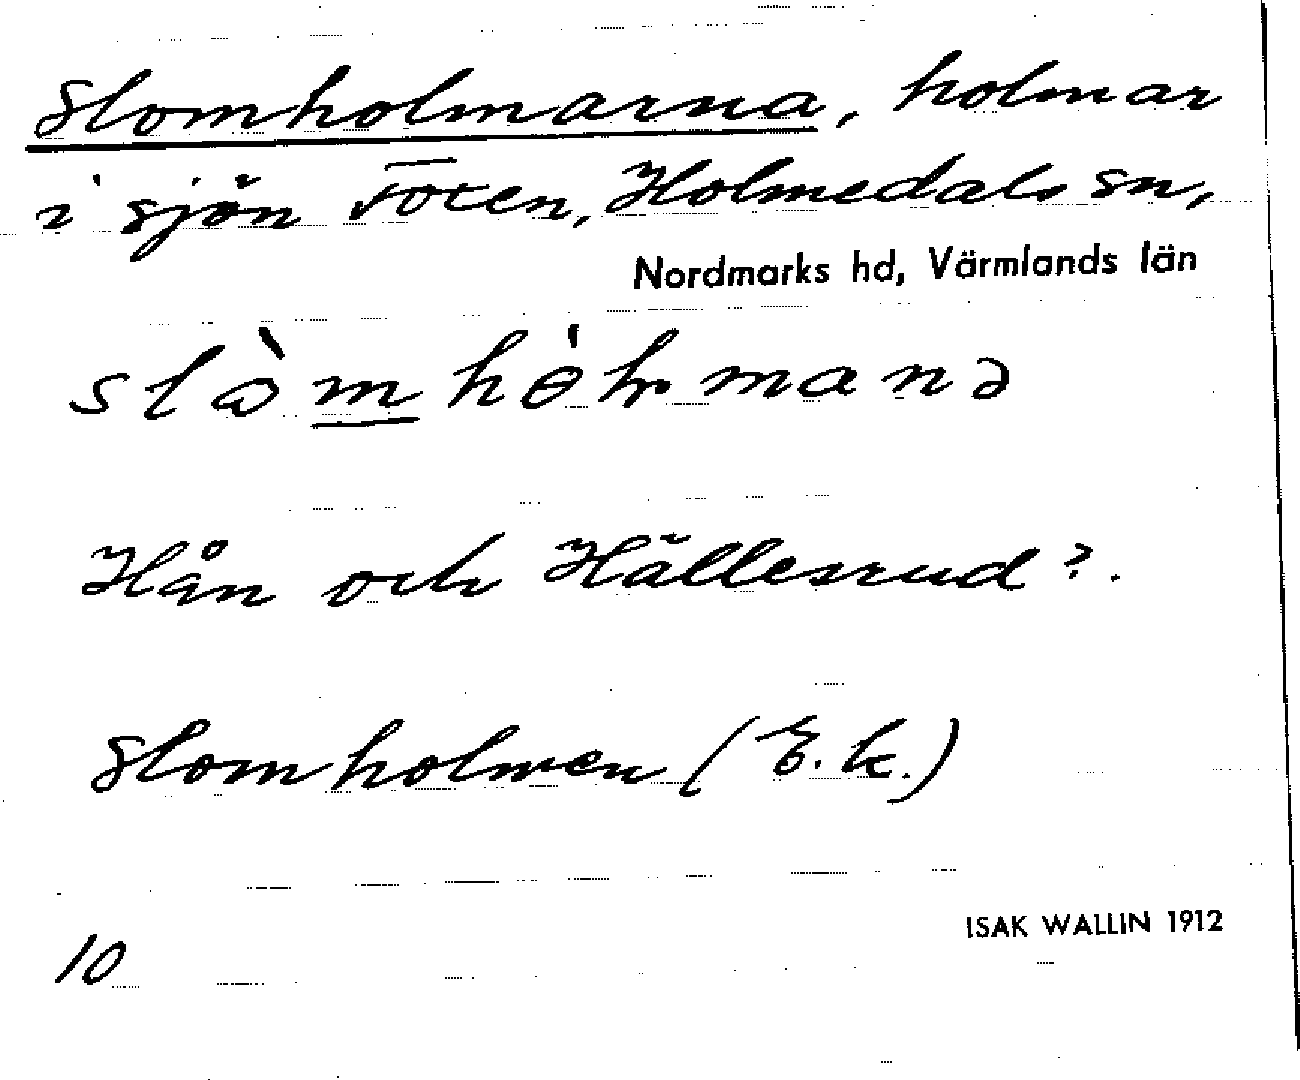 Slomholmarna, holmar
i sjön Foxen, Holmedals sn,
Nordmarks hd, Värmlands län
Hån och Hällesrud?.
Slomholmen (E.k.)
ISAK WALLIN 1912
10